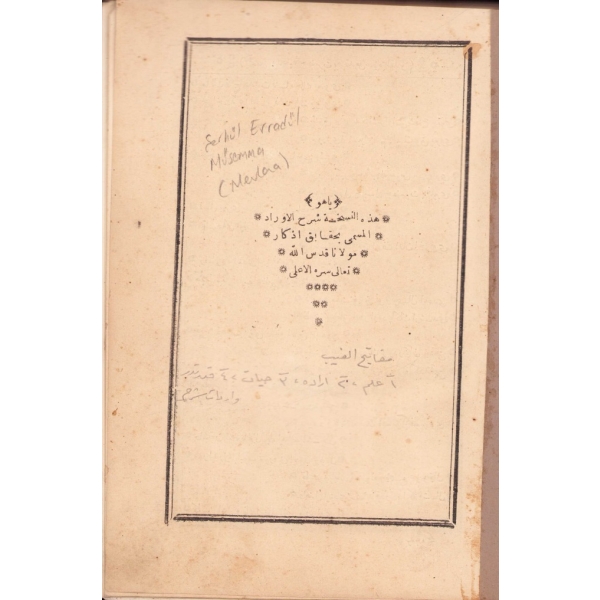 Şerhül Erradül
Müsemma
(Mevlaa)
﴿ياهو﴾
هذه النسخة شرح الاوراد
المسمى بحقايق اذكار
مولانا قدس الله
تعالى سره الاعلى
مفاتيح الغيب
١ علم ، ٢ اراده ، ٣ حيات ، ٤ قدرتدر